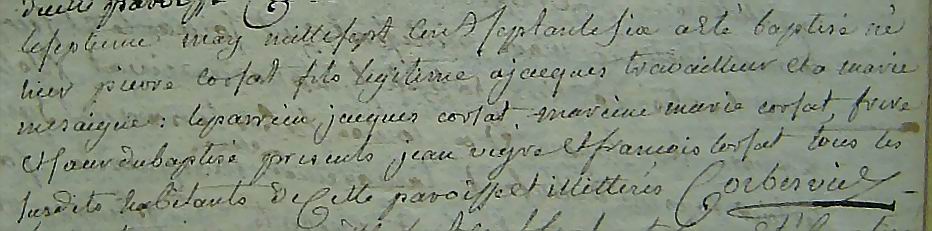 dicelle paroisse
le septieme may mille sept cent septante six a été baptisé né
hier pierre corsat fils legitime a jacques travailleur et a marie
mesaigue : le parrein jacques corsat mareine marie corsat, frere
et sœur du baptisé presents jean vigre et francois corsat tous les
susdits habitants de Cette paroisse et illitterés Corbervieu